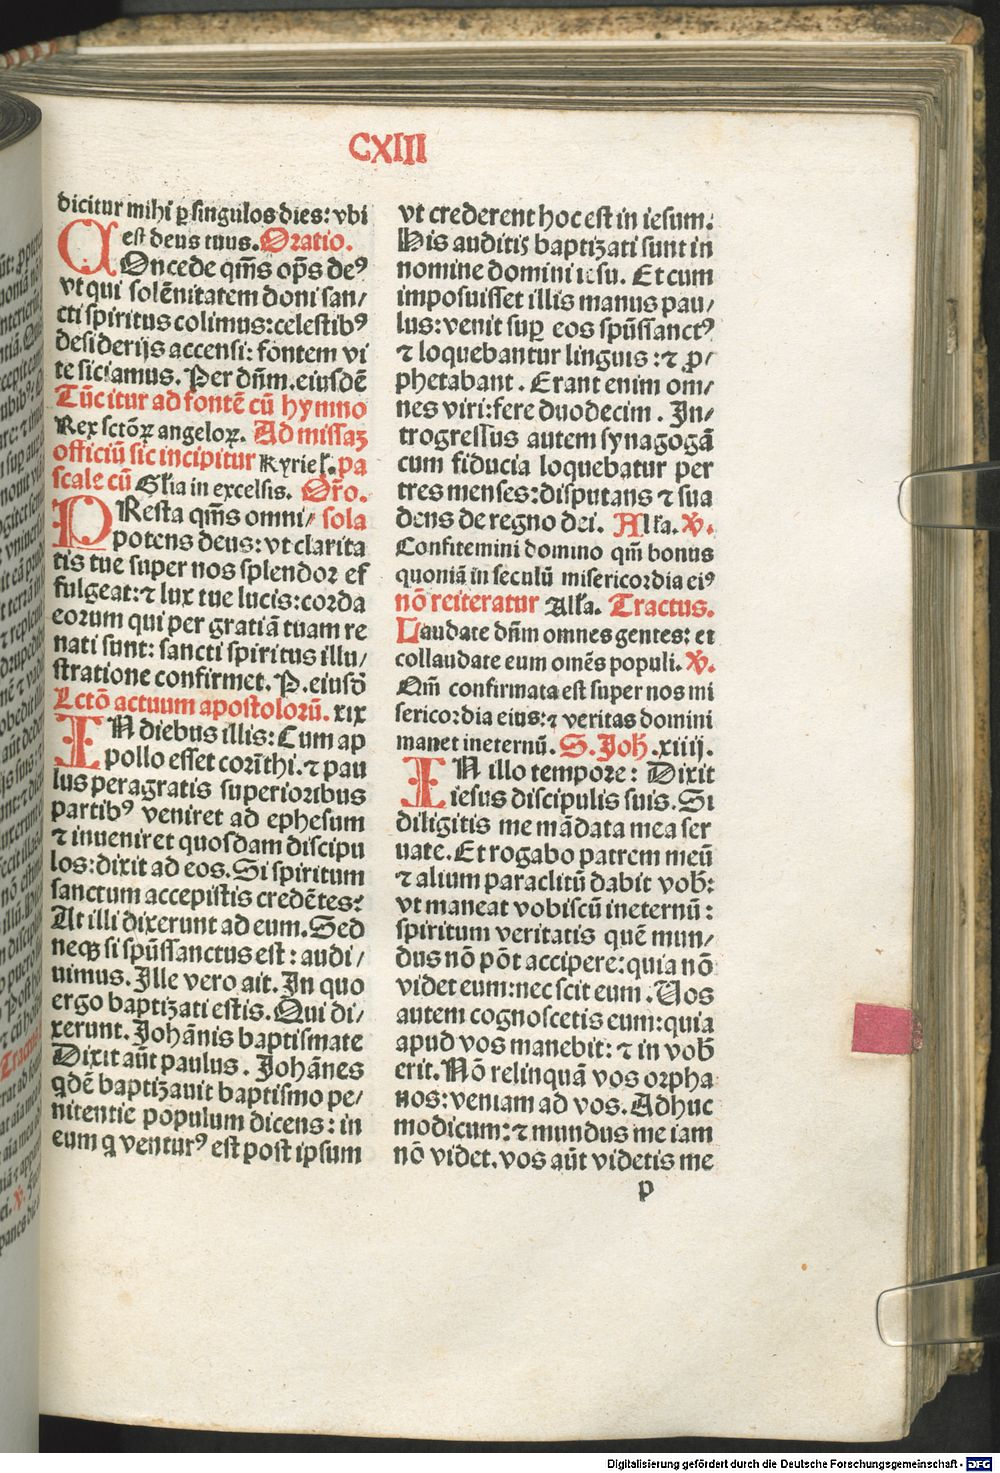 CXIII
dicitur mihi ꝑ singulos dies: vbi
est deus tuus. Oratio.
COncede qm̄s op̄s deꝰ
vt qui solēnitatem doni san/
cti spiritus colimus: celestibꝰ
desiderijs accensi: fontem vi
te siciamus. Per dn̄m. eiusdē
Tūc itur ad fontē cū hymno
Rex sctōꝝ angeloꝝ. Ad missaꝫ
officiū sic incipitur Kyriel. pa
scale cū Gl̄ia in excelsis. Or̄o.
PResta qm̄s omni/ sola
potens deus: vt clarita
tis tue super nos splendor ef
fulgeat: ⁊ lux tue lucis: corda
eorum qui per gratiā tuam re
nati sunt: sancti spiritus illu/
stratione confirmet. P. eiusdē
Lctō actuum apostolorū. xix
IN diebus illis: Cum ap
pollo esset corīthi. ⁊ pau
lus peragratis superioribus
partibꝰ veniret ad ephesum
⁊ inueniret quosdam discipu
los: dixit ad eos. Si spiritum
sanctum accepistis credētes?
At illi dixerunt ad eum. Sed
neqꝫ si spūssanctus est: audi/
uimus. Ille vero ait. In quo
ergo baptizati estis. Qui di/
xerunt. Johānis baptismate
Dixit aūt paulus. Johānes
qdē baptizauit baptismo pe/
nitentie populum dicens: in
eum q venturꝰ est post ipsum
vt crederent hoc est in iesum.
His auditis baptizati sunt in
nomine domini iesu. Et cum
imposuisset illis manus pau/
lus: venit suꝑ eos spūssanctꝰ
⁊ loquebantur linguis: ⁊ ꝓ/
phetabant. Erant enim om/
nes viri: fere duodecim. In/
trogressus autem synagogā
cum fiducia loquebatur per
tres menses: disputans ⁊ sua
dens de regno dei. All'a. ℣.
Confitemini domino qm̄ bonus
quoniā in seculū misericordia eiꝰ
nō reiteratur All'a. Tractus.
Laudate dn̄m omnes gentes: et
collaudate eum omēs populi. ℣.
Qm̄ confirmata est super nos mi
sericordia eius: ⁊ veritas domini
manet in eternū. S. Joh̄. xiiij.
IN illo tempore: Dixit
iesus discipulis suis. Si
diligitis me mādata mea ser
uate. Et rogabo patrem meū
⁊ alium paraclitū dabit vob̄:
vt maneat vobiscū in eternū:
spiritum veritatis quē mun/
dus nō pōt accipere: quia nō
videt eum: nec scit eum. Uos
autem cognoscetis eum: quia
apud vos manebit: ⁊ in vob̄
erit. Nō relinquā vos orpha
nos: veniam ad vos. Adhuc
modicum: ⁊ mundus me iam
nō videt. vos aūt videtis me
p
Digitalisierung gefördert durch die Deutsche Forschungsgemeinschaft - DFG